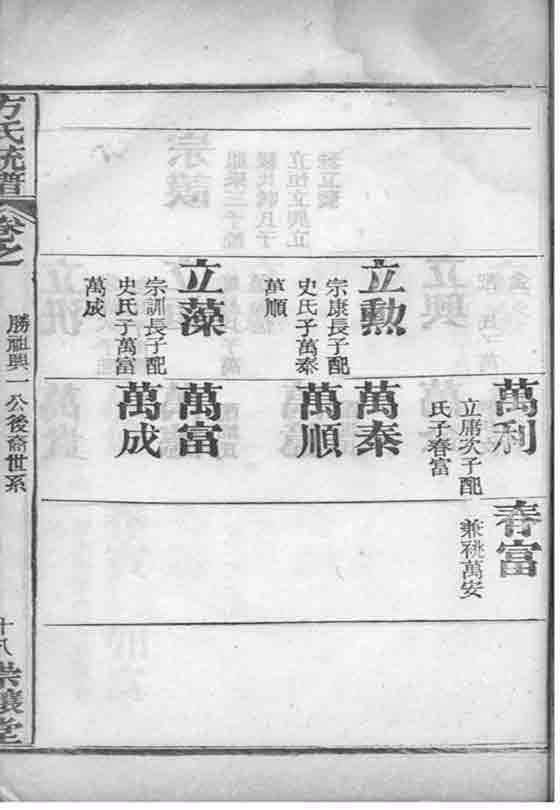 萬利
立庸次子配
氏子春富
春富
兼祧萬安
立勳
宗康長子配
史氏子萬泰
萬順
萬泰
萬順
立藻
宗訓長子配
史氏子萬富
萬成
萬富
萬成
方氏統譜
卷之
勝祖興一公後裔世系
十八
崇讓堂